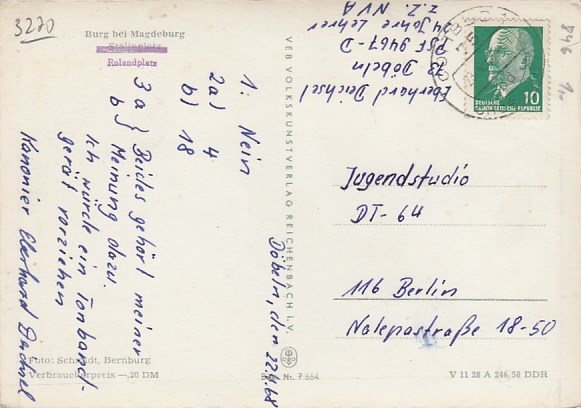 3270
Burg bei Magdeburg
Stalinplatz
Rolandplatz
1: Nein
2a) 4
b) 18
3 a } Beides gehört meiner
b } Meinung dazu.
Ich würde ein Tonband-
gerät vorziehen
Kanonier Eberhard
Foto: Schmidt, Bernburg
Verbraucherpreis —,20 DM
VEB VOLKSKUNSTVERLAG REICHENBACH I. V.
Döbeln, den 22.4.68
Eberhard
73 Döbeln
PSF 9467-D
Jahre Lehrer
z.Z. NVA
DEUTSCHE
DEMOKRATISCHE REPUBLIK
10
Jugendstudio
DT-64
116 Berlin
Nalepastraße 18-50
Nr. 7 664
V 11 28 A 246/58 DDR